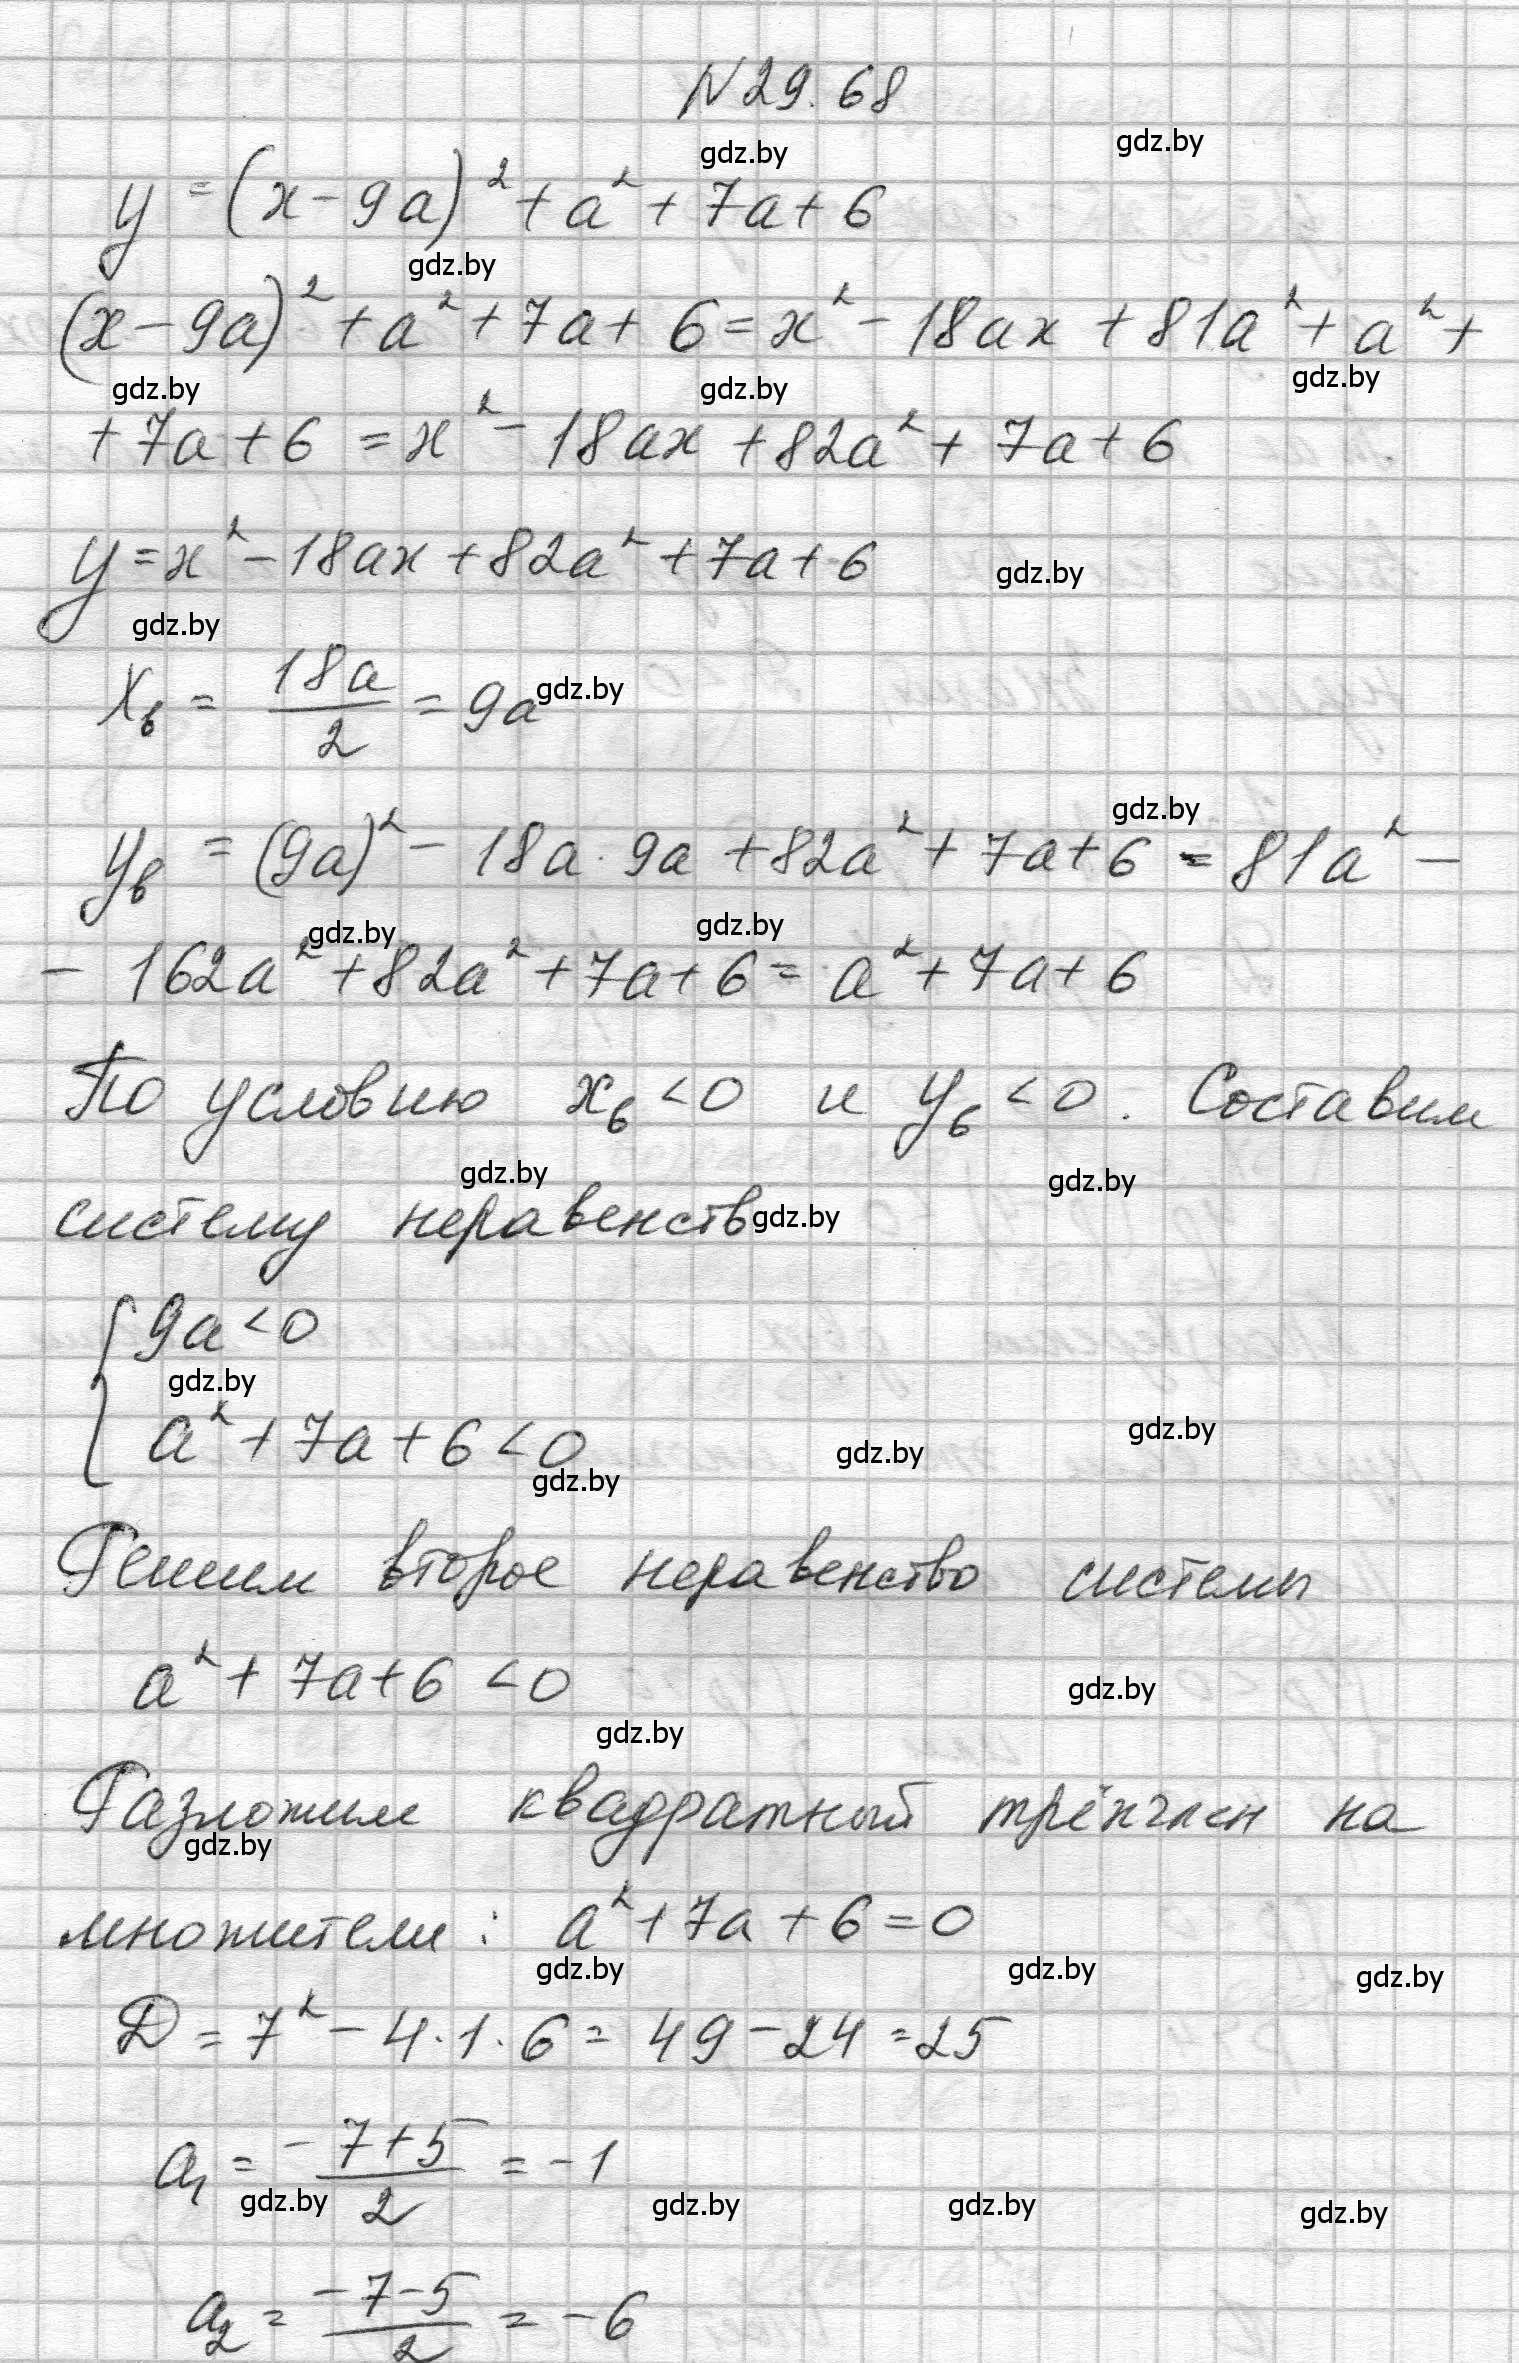 N 29.68
gdz.by
gdz.by
y = (x-9a)² + a² + 7a + 6
gdz.by
(x-9a)² + a² + 7a + 6 = x² - 18ax + 81a² + a² +
gdz.by
gdz.by
gdz.by
+ 7a + 6 = x² - 18ax + 82a² + 7a + 6
y = x² - 18ax + 82a² + 7a + 6
gdz.by
gdz.by
xв = 18a/2 = 9a
gdz.by
gdz.by
yв = (9a)² - 18a · 9a + 82a² + 7a + 6 = 81a² -
gdz.by
gdz.by
- 162a² + 82a² + 7a + 6 = a² + 7a + 6
По условию xв < 0 и yв < 0. Составим
gdz.by
gdz.by
систему неравенств
gdz.by
{ 9a < 0
gdz.by
a² + 7a + 6 < 0
gdz.by
gdz.by
gdz.by
Решим второе неравенство системы
a² + 7a + 6 < 0
gdz.by
gdz.by
Разложим квадратный трёхчлен на
gdz.by
множители: a² + 7a + 6 = 0
gdz.by
gdz.by
gdz.by
D = 7² - 4·1·6 = 49 - 24 = 25
a₁ = (-7+5)/2 = -1
gdz.by
gdz.by
gdz.by
gdz.by
a₂ = (-7-5)/2 = -6